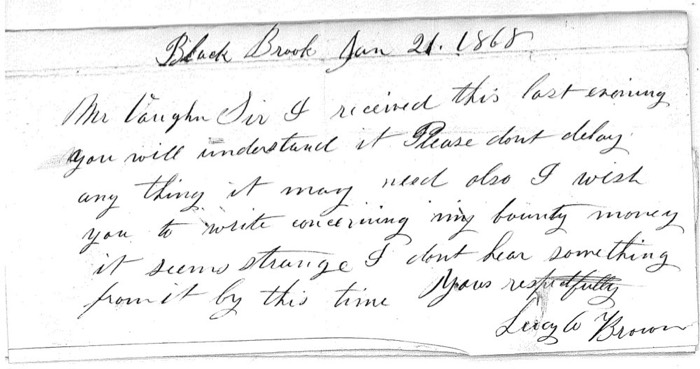 Black Brook Jan 21. 1868
Mr Vaughn Sir I received this last evening
you will understand it Please dont delay
any thing it may need also I wish
you to write concerning my bounty money
it seems strange I dont hear something
from it by this time Yours respectfully
Brown